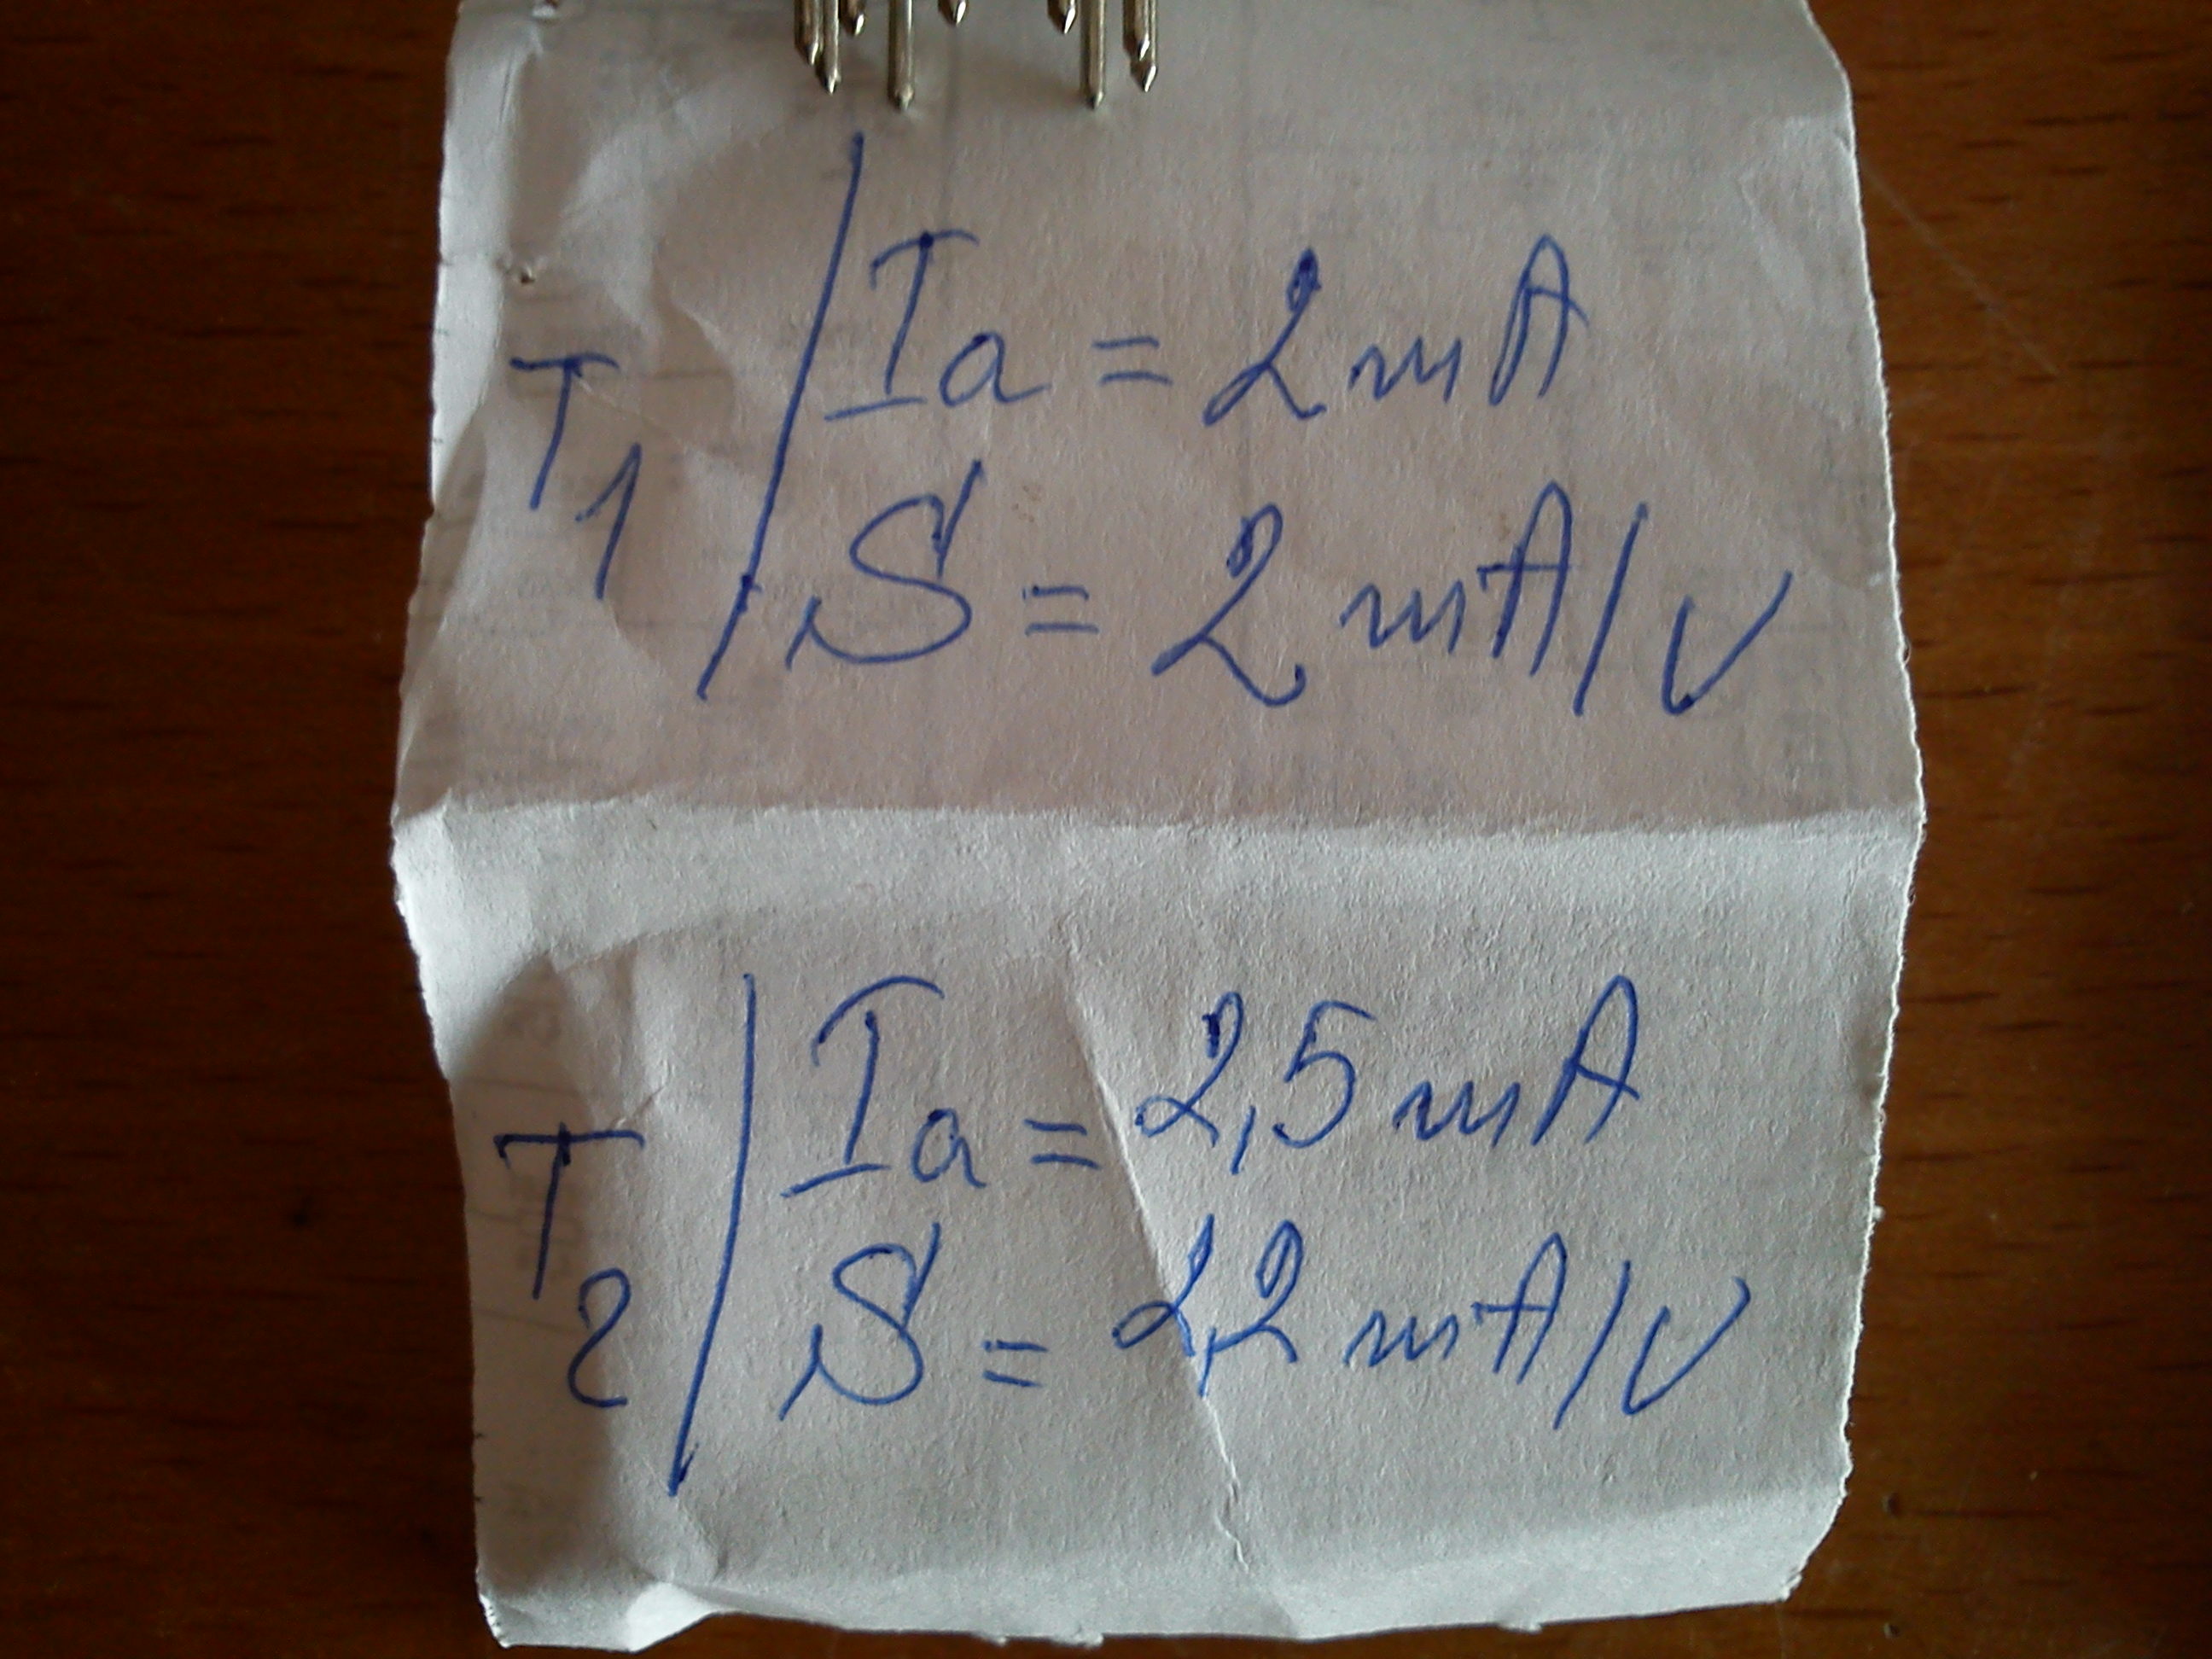 T1 / Ia = 2 mA
S = 2 mA/V
T2 / Ia = 2,5 mA
S = 2,2 mA/V